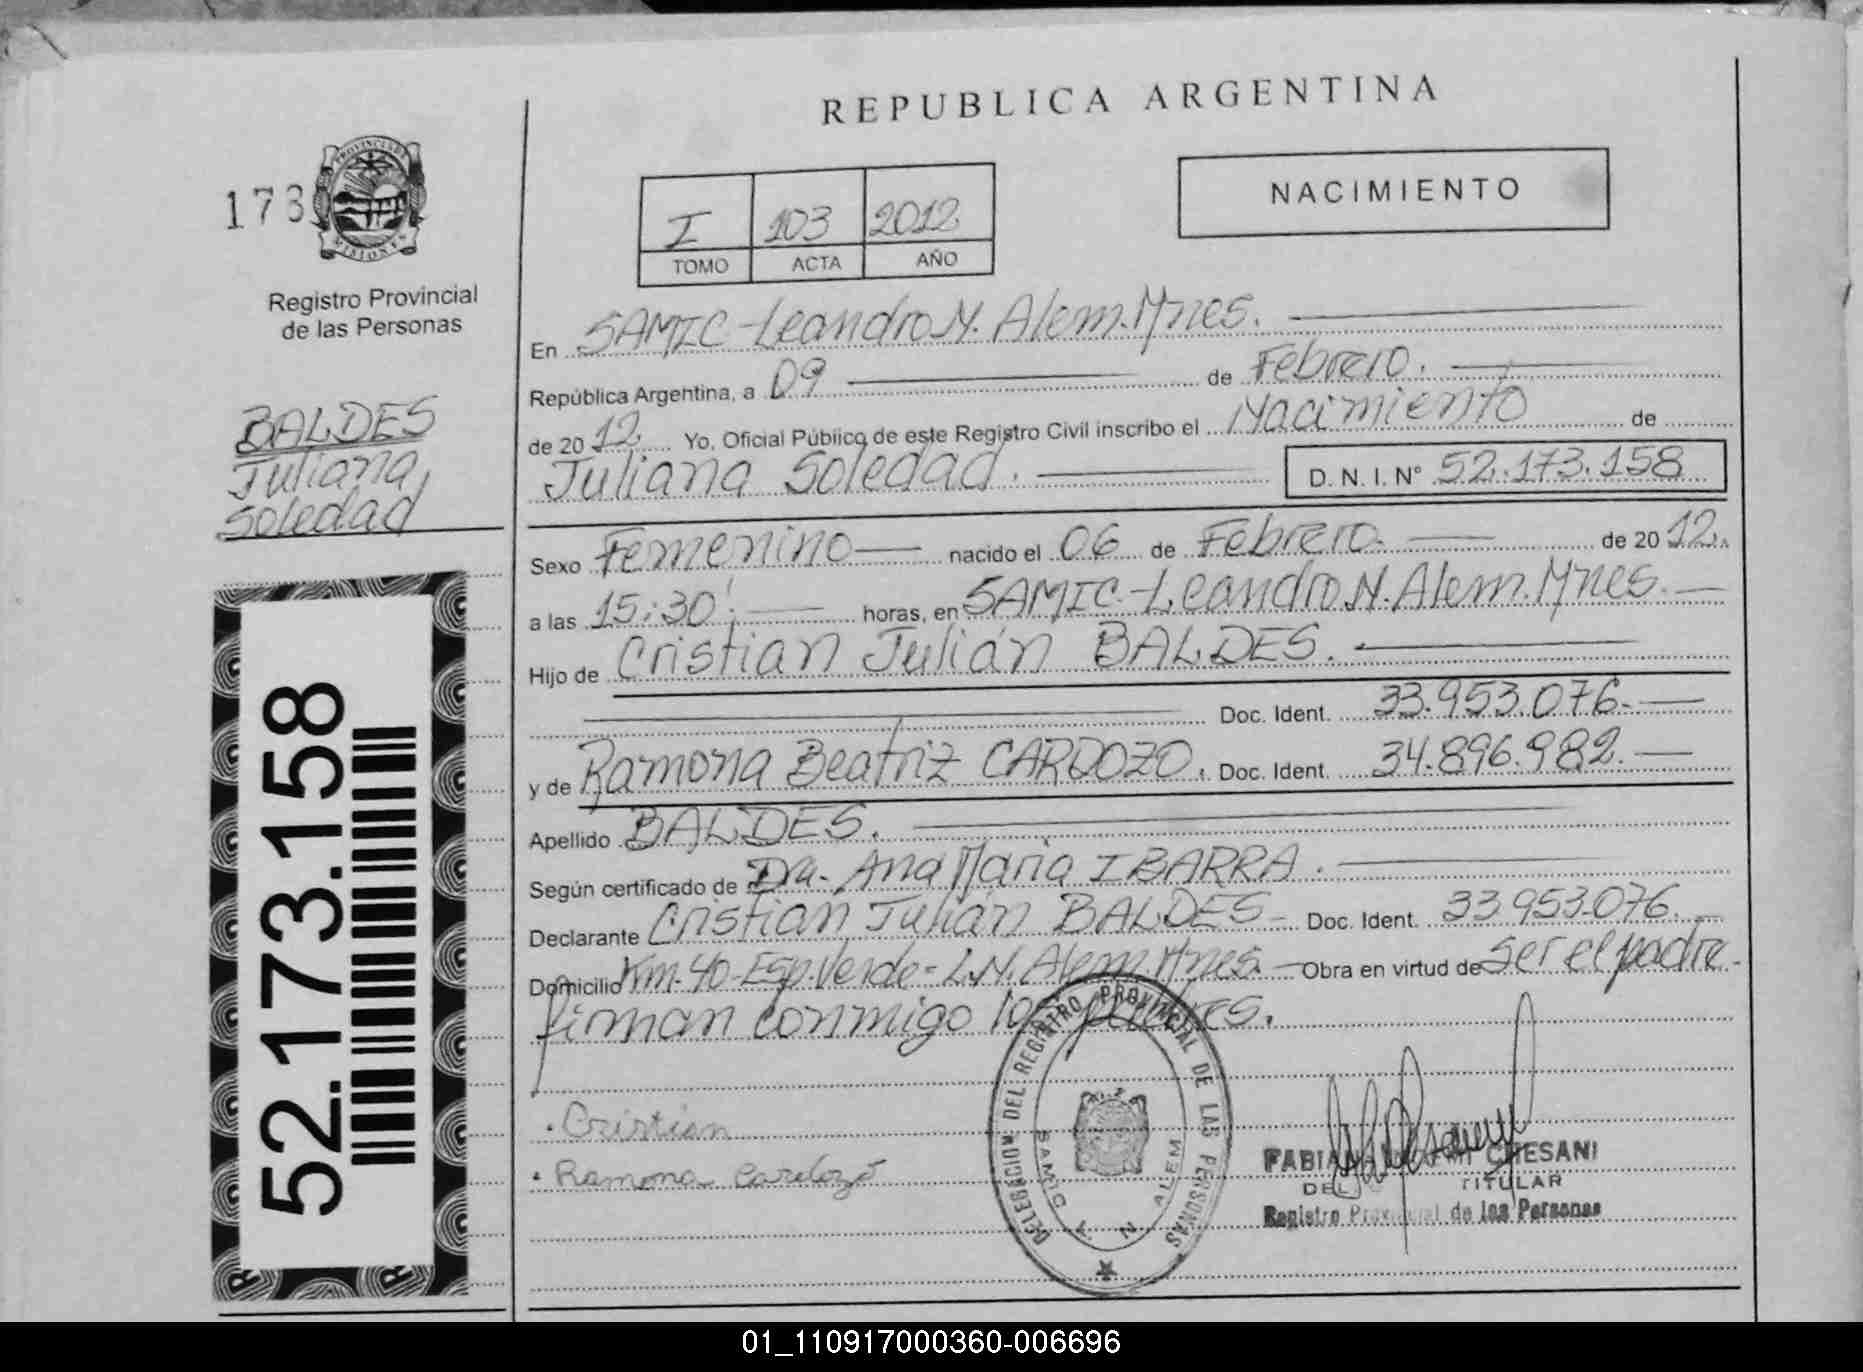 REPUBLICA ARGENTINA
173
PROVINCIA DE MISIONES
Registro Provincial
de las Personas
I 103 2012
TOMO ACTA AÑO
NACIMIENTO
BALDES
Juliana
Soledad
52.173.158
En SAMIC-Leandro N. Alem. Mnes.
República Argentina, a 09 de Febrero.
de 2012. Yo, Oficial Público de este Registro Civil inscribo el Nacimiento de
Juliana Soledad. D. N. I. N° 52.173.158
Sexo Femenino nacido el 06 de Febrero. de 2012.
a las 15:30'. horas, en SAMIC-Leandro N. Alem. Mnes.
Hijo de Cristian Julián BALDES.
Doc. Ident. 33.953.076.
y de Ramona Beatriz CARDOZO. Doc. Ident. 34.896.982.
Apellido BALDES.
Según certificado de Dra. Ana María IBARRA.
Declarante Cristian Julián BALDES Doc. Ident. 33.953.076.
Domicilio Km. 40-Esp. Verde-L.N. Alem. Mnes. Obra en virtud de ser el padre.
firman conmigo los padres.
Cristian
Ramona Cardozo
DELEGACION DEL REGISTRO PROVINCIAL DE LAS PERSONAS
N ALEM
CHESANI
TITULAR
Registro Provincial de las Personas
01_110917000360-006696